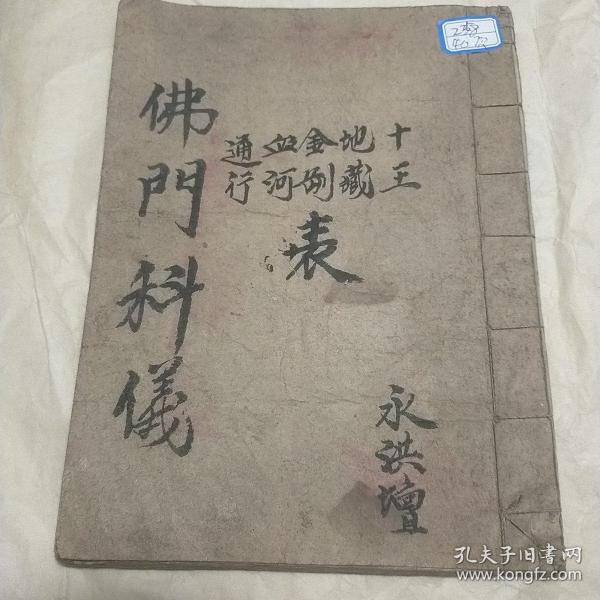 十王
地藏
金刚
血河
通行
表
佛門科儀
永洪壇
孔夫子旧書网
www.kongfz.com